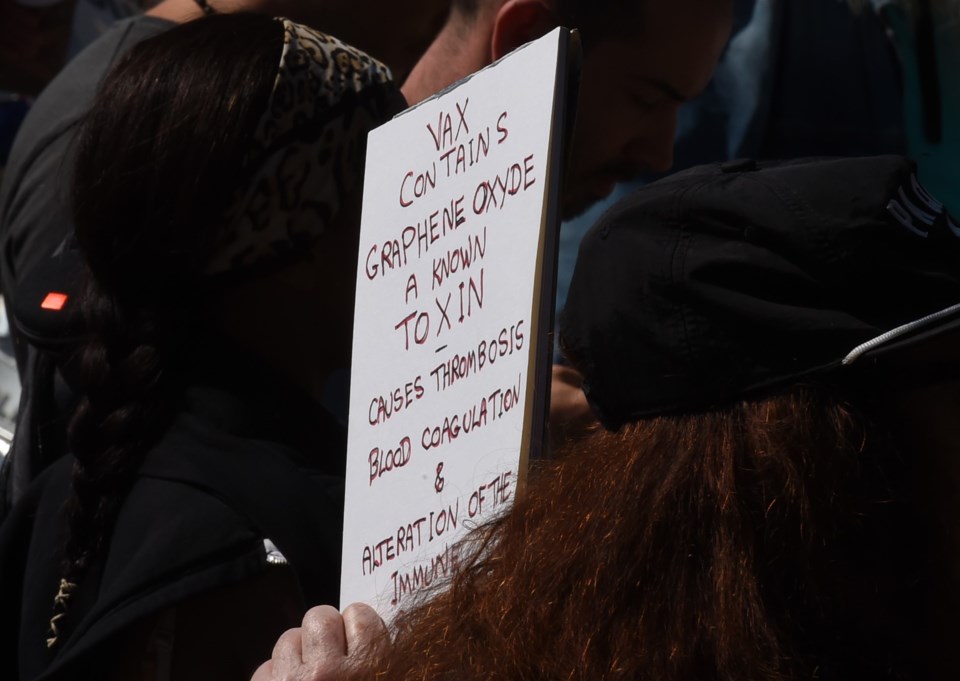 VAX
CONTAINS
GRAPHENE OXYDE
A KNOWN
TOXIN
-
CAUSES THROMBOSIS
BLOOD COAGULATION
&
ALTERATION OF THE
IMMUNE